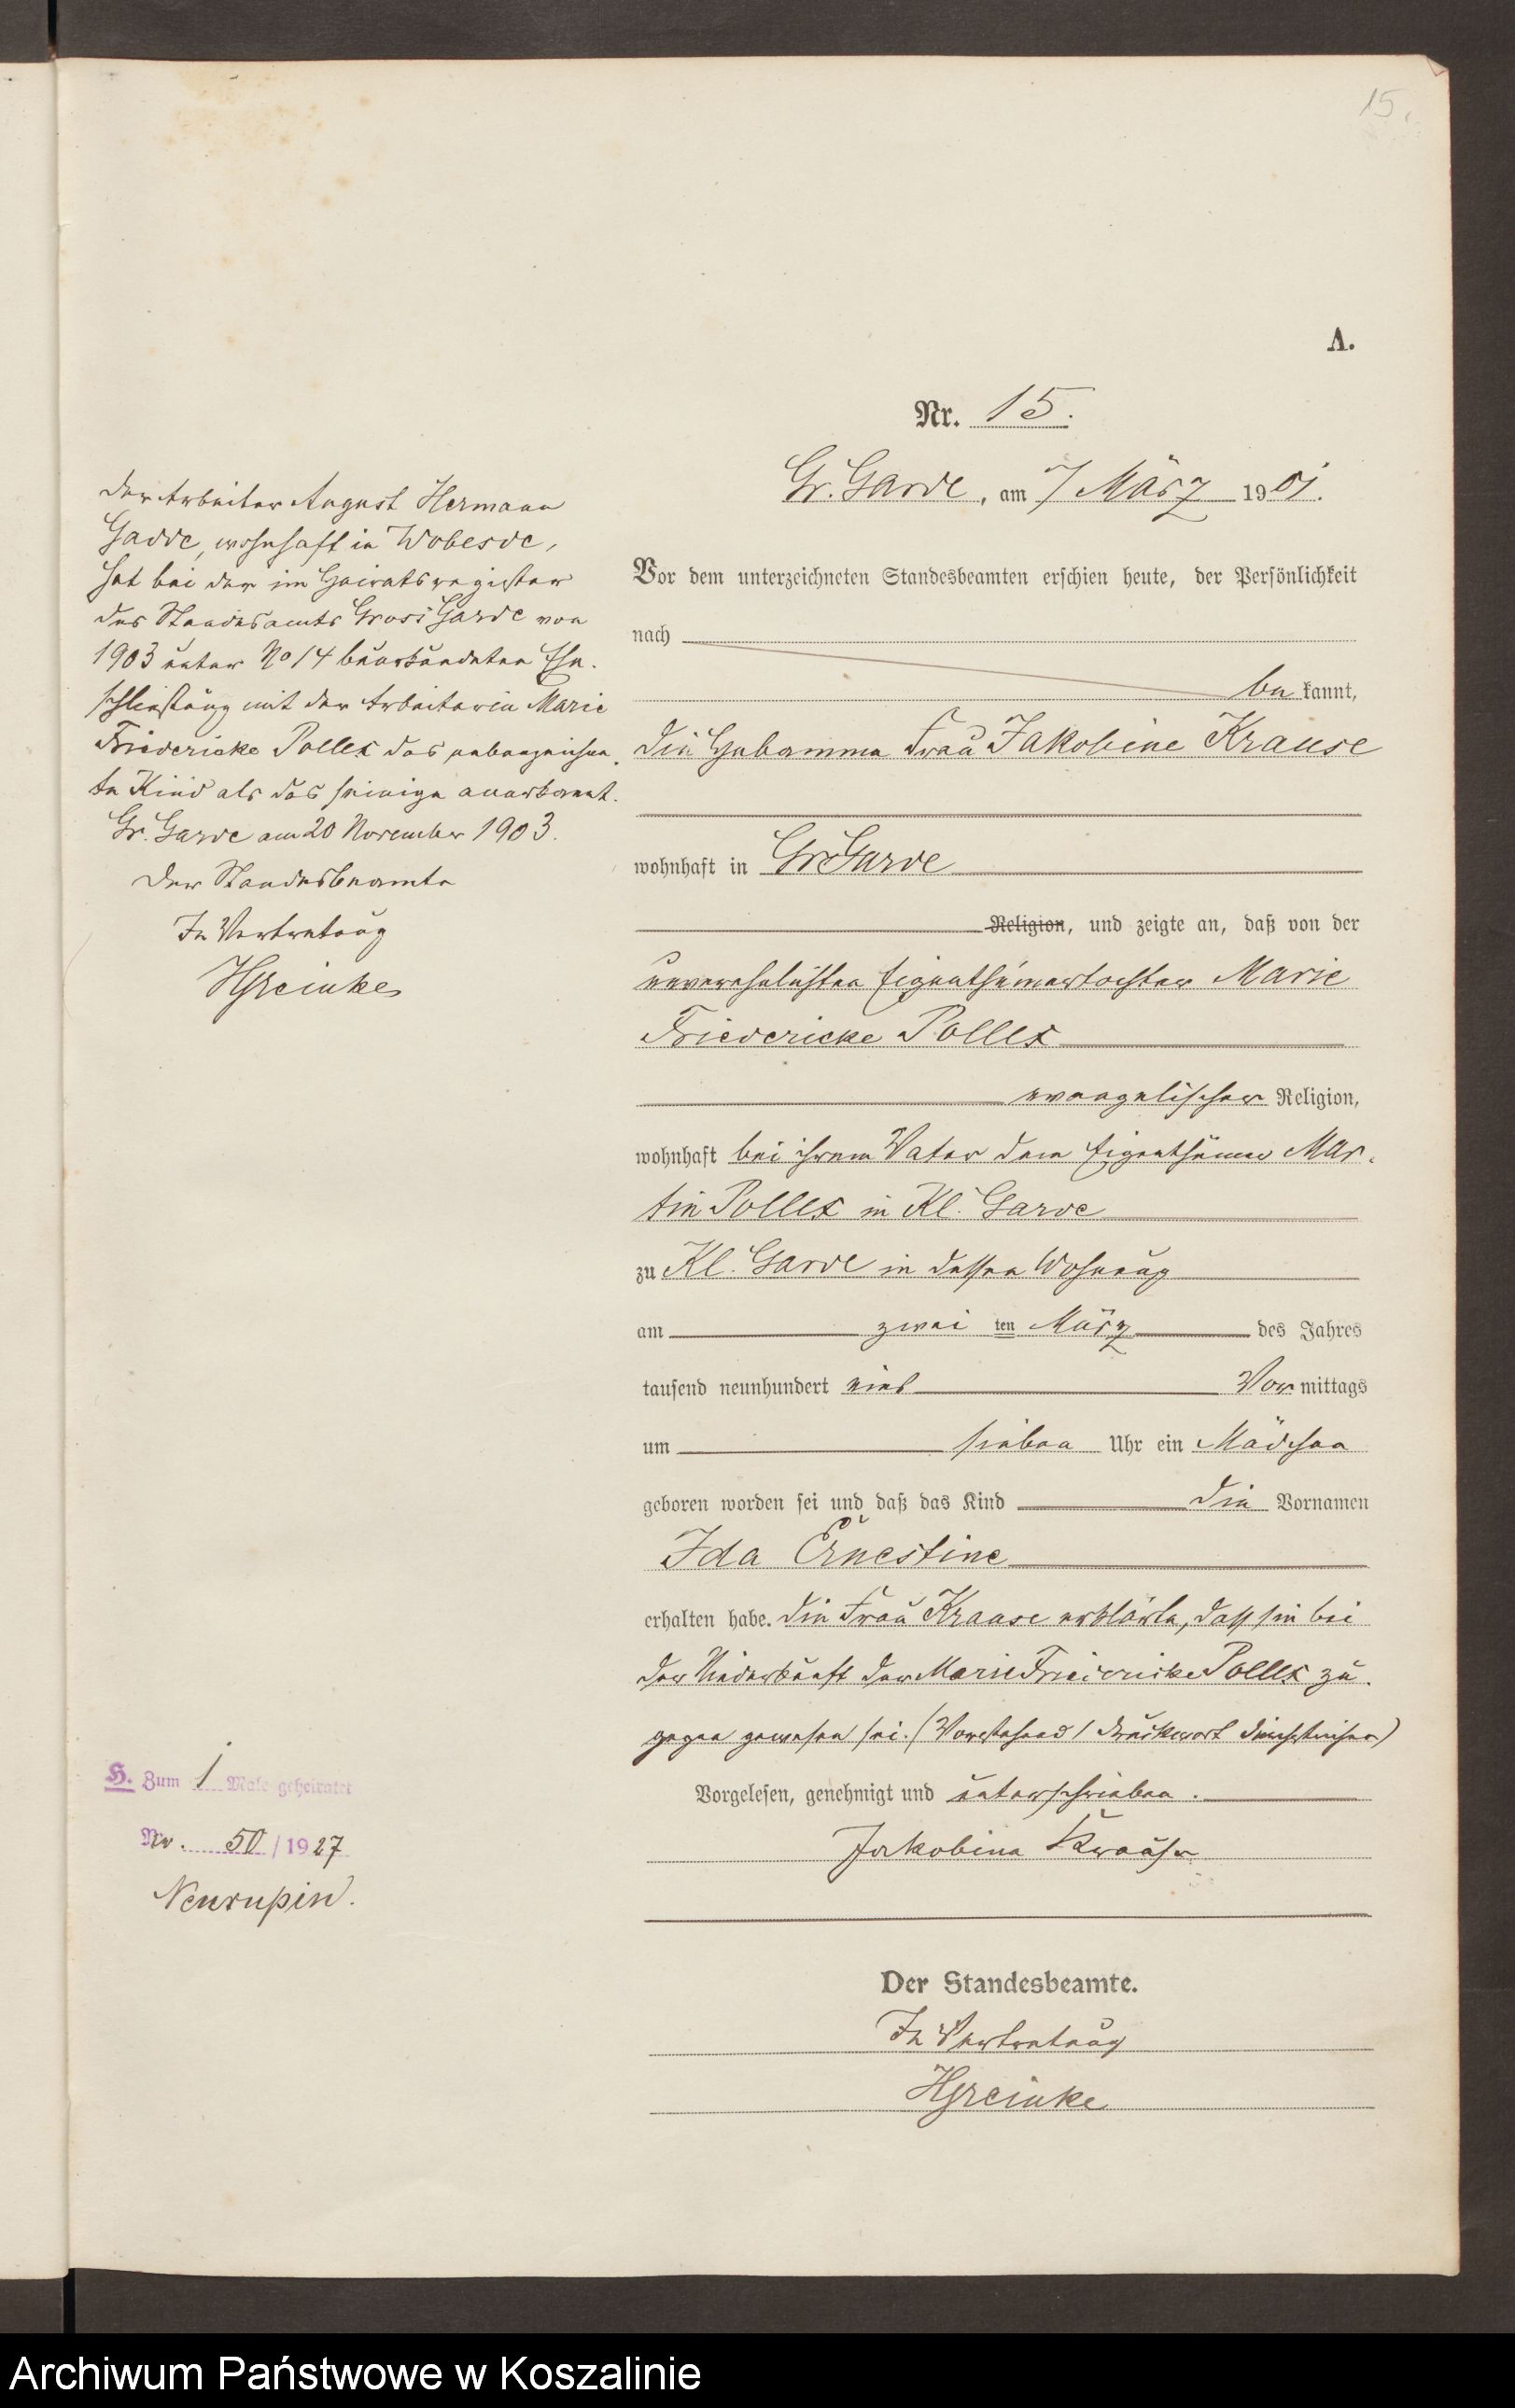 15.
A.
Nr. 15.
Gr. Garde, am 7 März 1901.
Vor dem unterzeichneten Standesbeamten erschien heute, der Persönlichkeit
nach
be kannt,
die Hebamme Frau Jakobine Krause
wohnhaft in Gr Garde
Religion, und zeigte an, daß von der
unverehelichten Eigenthümertochter Marie
Friedericke Pollex
evangelischer Religion,
wohnhaft bei ihrem Vater dem Eigenthümer Mar-
tin Pollex in Kl. Garde
zu Kl. Garde in dessen Wohnung
am zwei ten März des Jahres
tausend neunhundert eins Vor mittags
um sieben Uhr ein Mädchen
geboren worden sei und daß das Kind die Vornamen
Ida Ernestine
erhalten habe. Die Frau Krause erklärte, daß sie bei
der Niederkunft der Marie Friedericke Pollex zu-
gegen gewesen sei. (Vorstehend 1 Druckwort durchstrichen)
Vorgelesen, genehmigt und unterschrieben.
Jakobine Krause
Der Standesbeamte.
In Vertretung
HGreinke
Der Arbeiter August Hermann
Gadde, wohnhaft in Wobesde,
hat bei der im Heiratsregister
des Standesamts Gross Garde von
1903 unter No 14 beurkundeten Ehe-
schließung mit der Arbeiterin Marie
Friedericke Pollex das nebenbezeichne-
te Kind als das seinige anerkannt.
Gr. Garde am 20 November 1903.
Der Standesbeamte
In Vertretung
HGreinke
H. Zum 1 Male geheiratet
Nr. 50/1927
Neurupin.
Archiwum Państwowe w Koszalinie